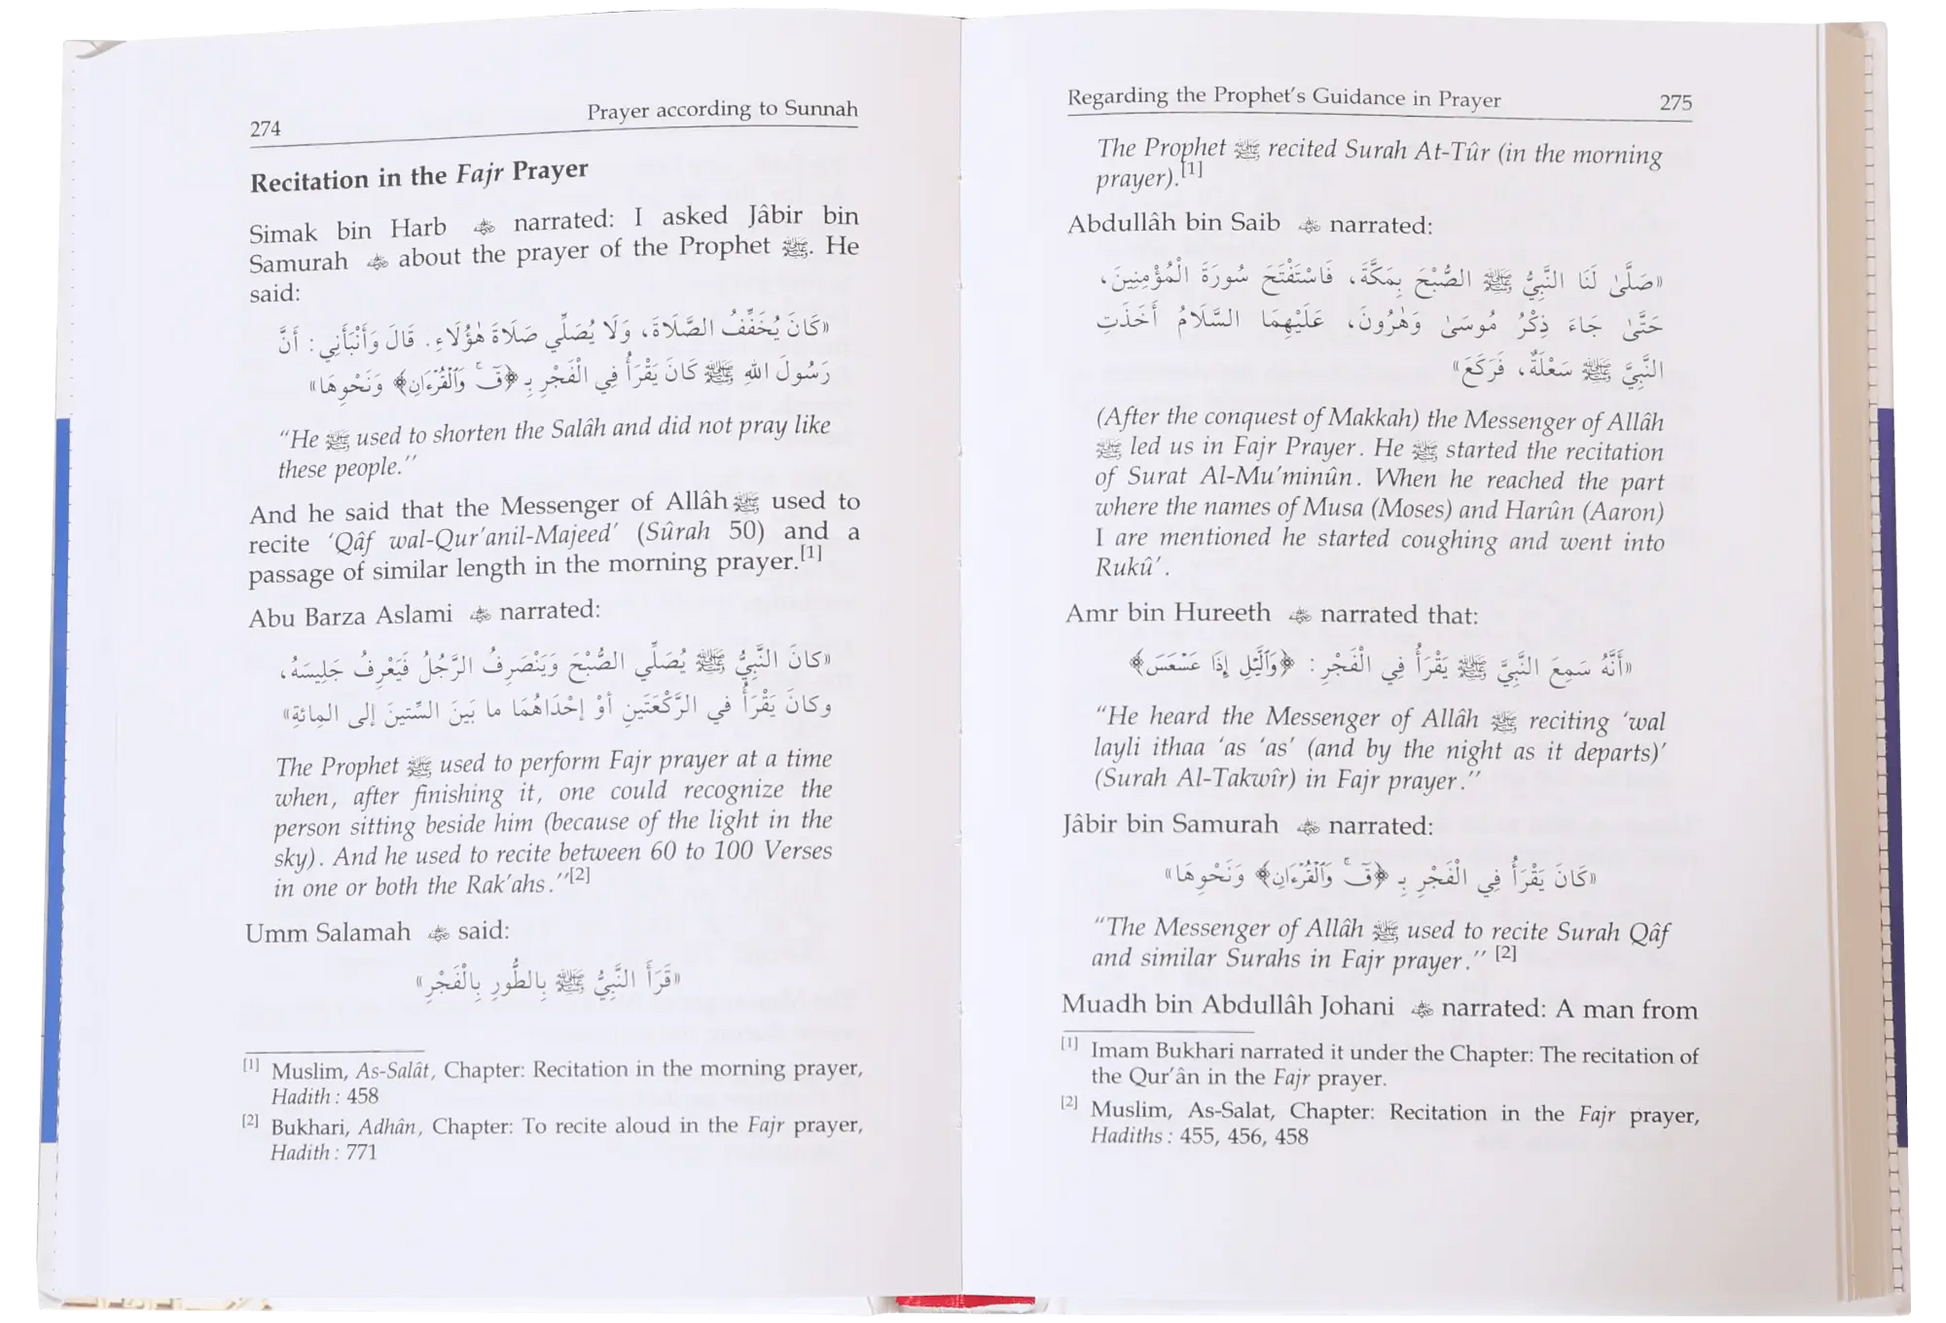 274
Prayer according to Sunnah
Recitation in the Fajr Prayer
Simak bin Harb narrated: I asked Jâbir bin
Samurah about the prayer of the Prophet ﷺ. He
said:
«كَانَ يُخَفِّفُ الصَّلَاةَ، وَلَا يُصَلِّي صَلَاةَ هٰؤُلَاءِ. قَالَ وَأَنْبَأَنِي: أَنَّ
رَسُولَ اللهِ ﷺ كَانَ يَقْرَأُ فِي الْفَجْرِ بِـ ﴿قٓۚ وَٱلْقُرْءَانِ﴾ وَنَحْوِهَا»
“He ﷺ used to shorten the Salâh and did not pray like
these people.’’
And he said that the Messenger of Allâh ﷺ used to
recite ‘Qâf wal-Qur’anil-Majeed’ (Sûrah 50) and a
passage of similar length in the morning prayer.[1]
Abu Barza Aslami narrated:
«كانَ النَّبِيُّ ﷺ يُصَلِّي الصُّبْحَ وَيَنْصَرِفُ الرَّجُلُ فَيَعْرِفُ جَلِيسَهُ،
وكانَ يَقْرَأُ في الرَّكْعَتَينِ أوْ إحْدَاهُمَا ما بَينَ السِّتينَ إلى المِائةِ»
The Prophet ﷺ used to perform Fajr prayer at a time
when, after finishing it, one could recognize the
person sitting beside him (because of the light in the
sky). And he used to recite between 60 to 100 Verses
in one or both the Rak’ahs.’’[2]
Umm Salamah said:
«قَرَأَ النَّبِيُّ ﷺ بِالطُّورِ بِالْفَجْرِ»
[1] Muslim, As-Salât, Chapter: Recitation in the morning prayer,
Hadith : 458
[2] Bukhari, Adhân, Chapter: To recite aloud in the Fajr prayer,
Hadith : 771
Regarding the Prophet’s Guidance in Prayer
275
The Prophet ﷺ recited Surah At-Tûr (in the morning
prayer).[1]
Abdullâh bin Saib narrated:
«صَلَّىٰ لَنَا النَّبِيُّ ﷺ الصُّبْحَ بِمَكَّةَ، فَاسْتَفْتَحَ سُورَةَ الْمُؤْمِنِينَ،
حَتَّىٰ جَاءَ ذِكْرُ مُوسَىٰ وَهٰرُونَ، عَلَيْهِمَا السَّلَامُ أَخَذَتِ
النَّبِيَّ ﷺ سَعْلَةٌ، فَرَكَعَ»
(After the conquest of Makkah) the Messenger of Allâh
ﷺ led us in Fajr Prayer. He ﷺ started the recitation
of Surat Al-Mu’minûn. When he reached the part
where the names of Musa (Moses) and Harûn (Aaron)
I are mentioned he started coughing and went into
Rukû’.
Amr bin Hureeth narrated that:
«أَنَّهُ سَمِعَ النَّبِيَّ ﷺ يَقْرَأُ فِي الْفَجْرِ: ﴿وَٱلَّيْلِ إِذَا عَسْعَسَ﴾
“He heard the Messenger of Allâh ﷺ reciting ‘wal
layli ithaa ‘as ‘as’ (and by the night as it departs)’
(Surah Al-Takwîr) in Fajr prayer.’’
Jâbir bin Samurah narrated:
«كَانَ يَقْرَأُ فِي الْفَجْرِ بِـ ﴿قٓۚ وَٱلْقُرْءَانِ﴾ وَنَحْوِهَا»
“The Messenger of Allâh ﷺ used to recite Surah Qâf
and similar Surahs in Fajr prayer.’’ [2]
Muadh bin Abdullâh Johani narrated: A man from
[1] Imam Bukhari narrated it under the Chapter: The recitation of
the Qur’ân in the Fajr prayer.
[2] Muslim, As-Salat, Chapter: Recitation in the Fajr prayer,
Hadiths : 455, 456, 458